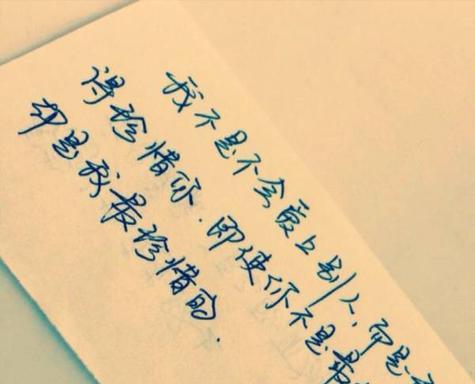 我不是不会爱上别人,而是
得珍惜你.即使你不是最
却是我最珍惜的.